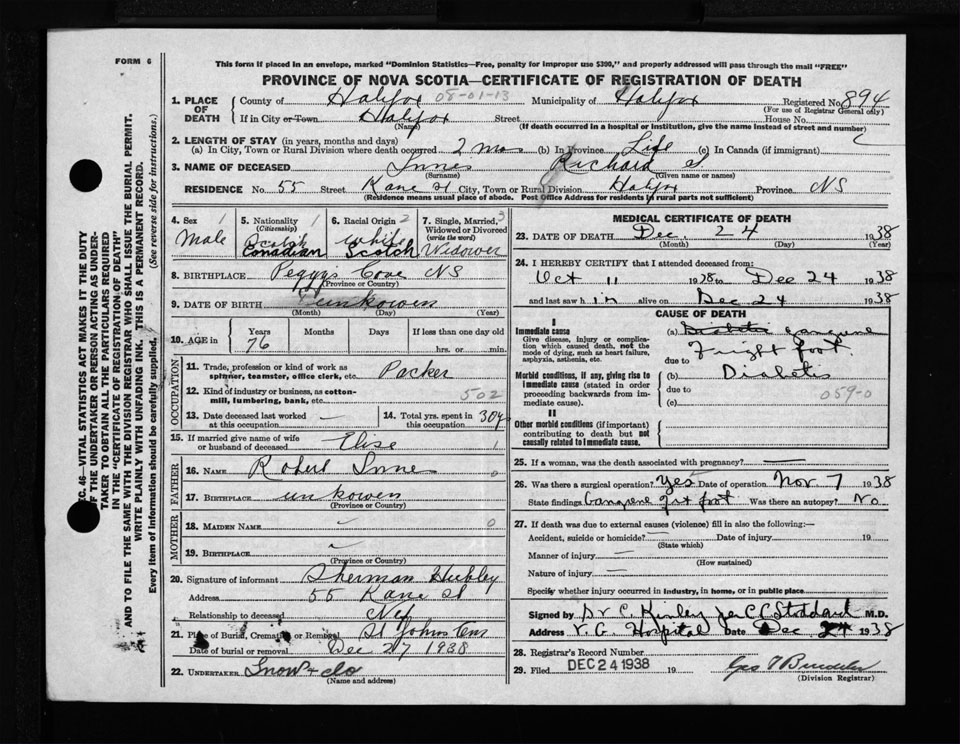 FORM 6
This form if placed in an envelope, marked "Dominion Statistics—Free, penalty for improper use $300," and properly addressed will pass through the mail "FREE"
PROVINCE OF NOVA SCOTIA—CERTIFICATE OF REGISTRATION OF DEATH
1. PLACE OF DEATH
County of Halifax 08-01-13 Municipality of Halifax Registered No. 894
(For use of Registrar General only)
If in City or Town Halifax Street House No.
(Name) (If death occurred in a hospital or institution, give the name instead of street and number)
2. LENGTH OF STAY (in years, months and days)
(a) In City, Town or Rural Division where death occurred 2 mos (b) In Province Life (c) In Canada (if immigrant)
3. NAME OF DECEASED Innes Richard
(Surname) (Given name or names)
RESIDENCE No. 55 Street Kane St City, Town or Rural Division Halifax Province NS
(Residence means usual place of abode. Post Office Address for residents in rural parts not sufficient)
4. Sex 1
Male
5. Nationality 1
(Citizenship)
Scotch
Canadian
6. Racial Origin 2
White
Scotch
7. Single, Married, 3
Widowed or Divorced
(write the word)
Widower
8. BIRTHPLACE Peggys Cove NS
(Province or Country)
9. DATE OF BIRTH unkowen
(Month) (Day) (Year)
10. AGE in
Years Months Days If less than one day old
76 hrs. or min.
OCCUPATION
11. Trade, profession or kind of work as
spinner, teamster, office clerk, etc. Packer
12. Kind of industry or business, as cotton-
mill, lumbering, bank, etc. 502
13. Date deceased last worked
at this occupation
14. Total yrs. spent in
this occupation 30 yrs
15. If married give name of wife
or husband of deceased Elise 1
FATHER
16. NAME Robert Inne 0
17. BIRTHPLACE unkowen
(Province or Country)
MOTHER
18. MAIDEN NAME 0
19. BIRTHPLACE
(Province or Country)
20. Signature of informant Sherman Hubley
Address 55 Kane St
Relationship to deceased
21. Place of Burial, Cremation or Removal St Johns Cem
Date of burial or removal Dec 27 1938
22. UNDERTAKER Snow + Co
(Name and address)
MEDICAL CERTIFICATE OF DEATH
23. DATE OF DEATH Dec. 24 1938
(Month) (Day) (Year)
24. I HEREBY CERTIFY that I attended deceased from
Oct 11 1938 to Dec 24 1938
and last saw h im alive on Dec 24 1938
CAUSE OF DEATH
I
Immediate cause
Give disease, injury or complica-
tion which caused death, not the
mode of dying, such as heart failure,
asphyxia, asthenia, etc.
(a) Diabetis gangrene
due to right foot
Morbid conditions, if any, giving rise to
immediate cause (stated in order
proceeding backwards from im-
mediate cause).
(b) Diabetis
due to 059-0
(c)
II
Other morbid conditions (if important)
contributing to death but not
causally related to immediate cause.
25. If a woman, was the death associated with pregnancy?
26. Was there a surgical operation? Yes Date of operation Nov. 7 1938
State findings Gangrene of rt foot Was there an autopsy? No
27. If death was due to external causes (violence) fill in also the following:—
Accident, suicide or homicide? Date of injury 19
(State which)
Manner of injury
(How sustained)
Nature of injury
Specify whether injury occurred in industry, in home, or in public place
Signed by Dr C. Kinley per C C Stoddard M.D.
Address V. G. Hospital Date Dec 24 1938
28. Registrar's Record Number
29. Filed DEC 24 1938 19
(Division Registrar)
SEC. 46—VITAL STATISTICS ACT MAKES IT THE DUTY
OF THE UNDERTAKER OR PERSON ACTING AS UNDER-
TAKER TO OBTAIN ALL THE PARTICULARS REQUIRED
IN THE "CERTIFICATE OF REGISTRATION OF DEATH"
AND TO FILE THE SAME WITH THE DIVISION REGISTRAR WHO SHALL ISSUE THE BURIAL PERMIT.
WRITE PLAINLY WITH UNFADING INK. THIS IS A PERMANENT RECORD.
Every item of information should be carefully supplied. (See reverse side for instructions.)